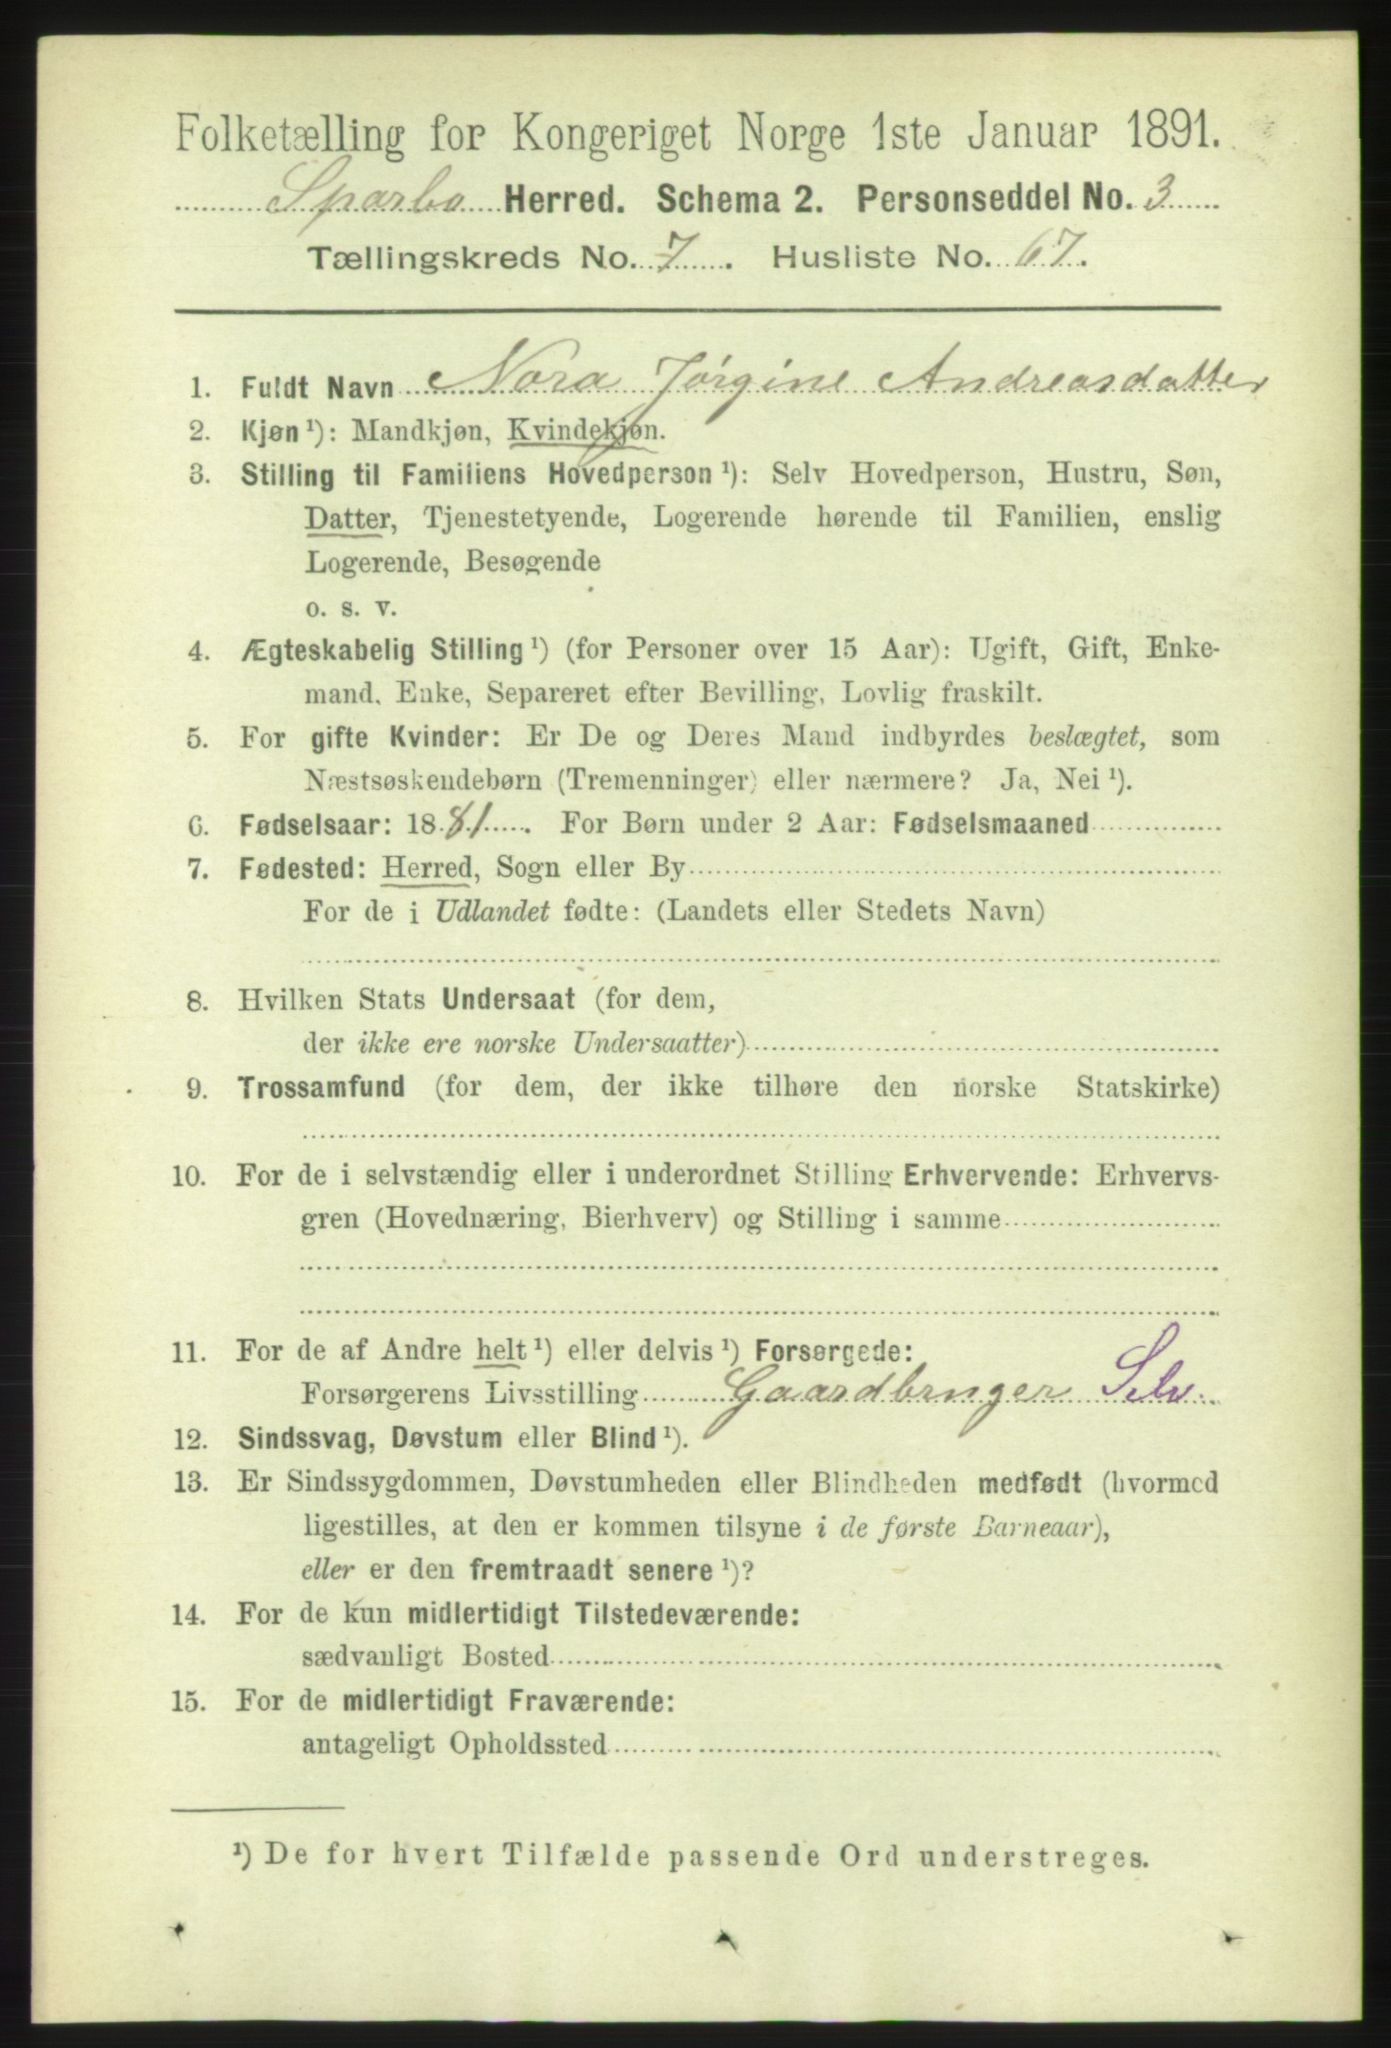 Folketælling for Kongeriget Norge 1ste Januar 1891.
Sparbo Herred. Schema 2. Personseddel No. 3
Tællingskreds No. 7. Husliste No. 67.
1. Fuldt Navn Nora Jørgine Andreasdatter
2. Kjøn ¹): Mandkjøn, Kvindekjøn.
3. Stilling til Familiens Hovedperson ¹): Selv Hovedperson, Hustru, Søn,
Datter, Tjenestetyende, Logerende hørende til Familien, enslig
Logerende, Besøgende
o. s. v.
4. Ægteskabelig Stilling ¹) (for Personer over 15 Aar): Ugift, Gift, Enke-
mand, Enke, Separeret efter Bevilling, Lovlig fraskilt.
5. For gifte Kvinder: Er De og Deres Mand indbyrdes beslægtet, som
Næstsøskendebørn (Tremenninger) eller nærmere? Ja, Nei ¹).
6. Fødselsaar: 1881. For Børn under 2 Aar: Fødselsmaaned
7. Fødested: Herred, Sogn eller By
For de i Udlandet fødte: (Landets eller Stedets Navn)
8. Hvilken Stats Undersaat (for dem,
der ikke ere norske Undersaatter)
9. Trossamfund (for dem, der ikke tilhøre den norske Statskirke)
10. For de i selvstændig eller i underordnet Stilling Erhvervende: Erhvervs-
gren (Hovednæring, Bierhverv) og Stilling i samme
11. For de af Andre helt ¹) eller delvis ¹) Forsørgede:
Forsørgerens Livsstilling Gaardbruger Selv.
12. Sindssvag, Døvstum eller Blind ¹).
13. Er Sindssygdommen, Døvstumheden eller Blindheden medfødt (hvormed
ligestilles, at den er kommen tilsyne i de første Barneaar),
eller er den fremtraadt senere ¹)?
14. For de kun midlertidigt Tilstedeværende:
sædvanligt Bosted
15. For de midlertidigt Fraværende:
antageligt Opholdssted
¹) De for hvert Tilfælde passende Ord understreges.